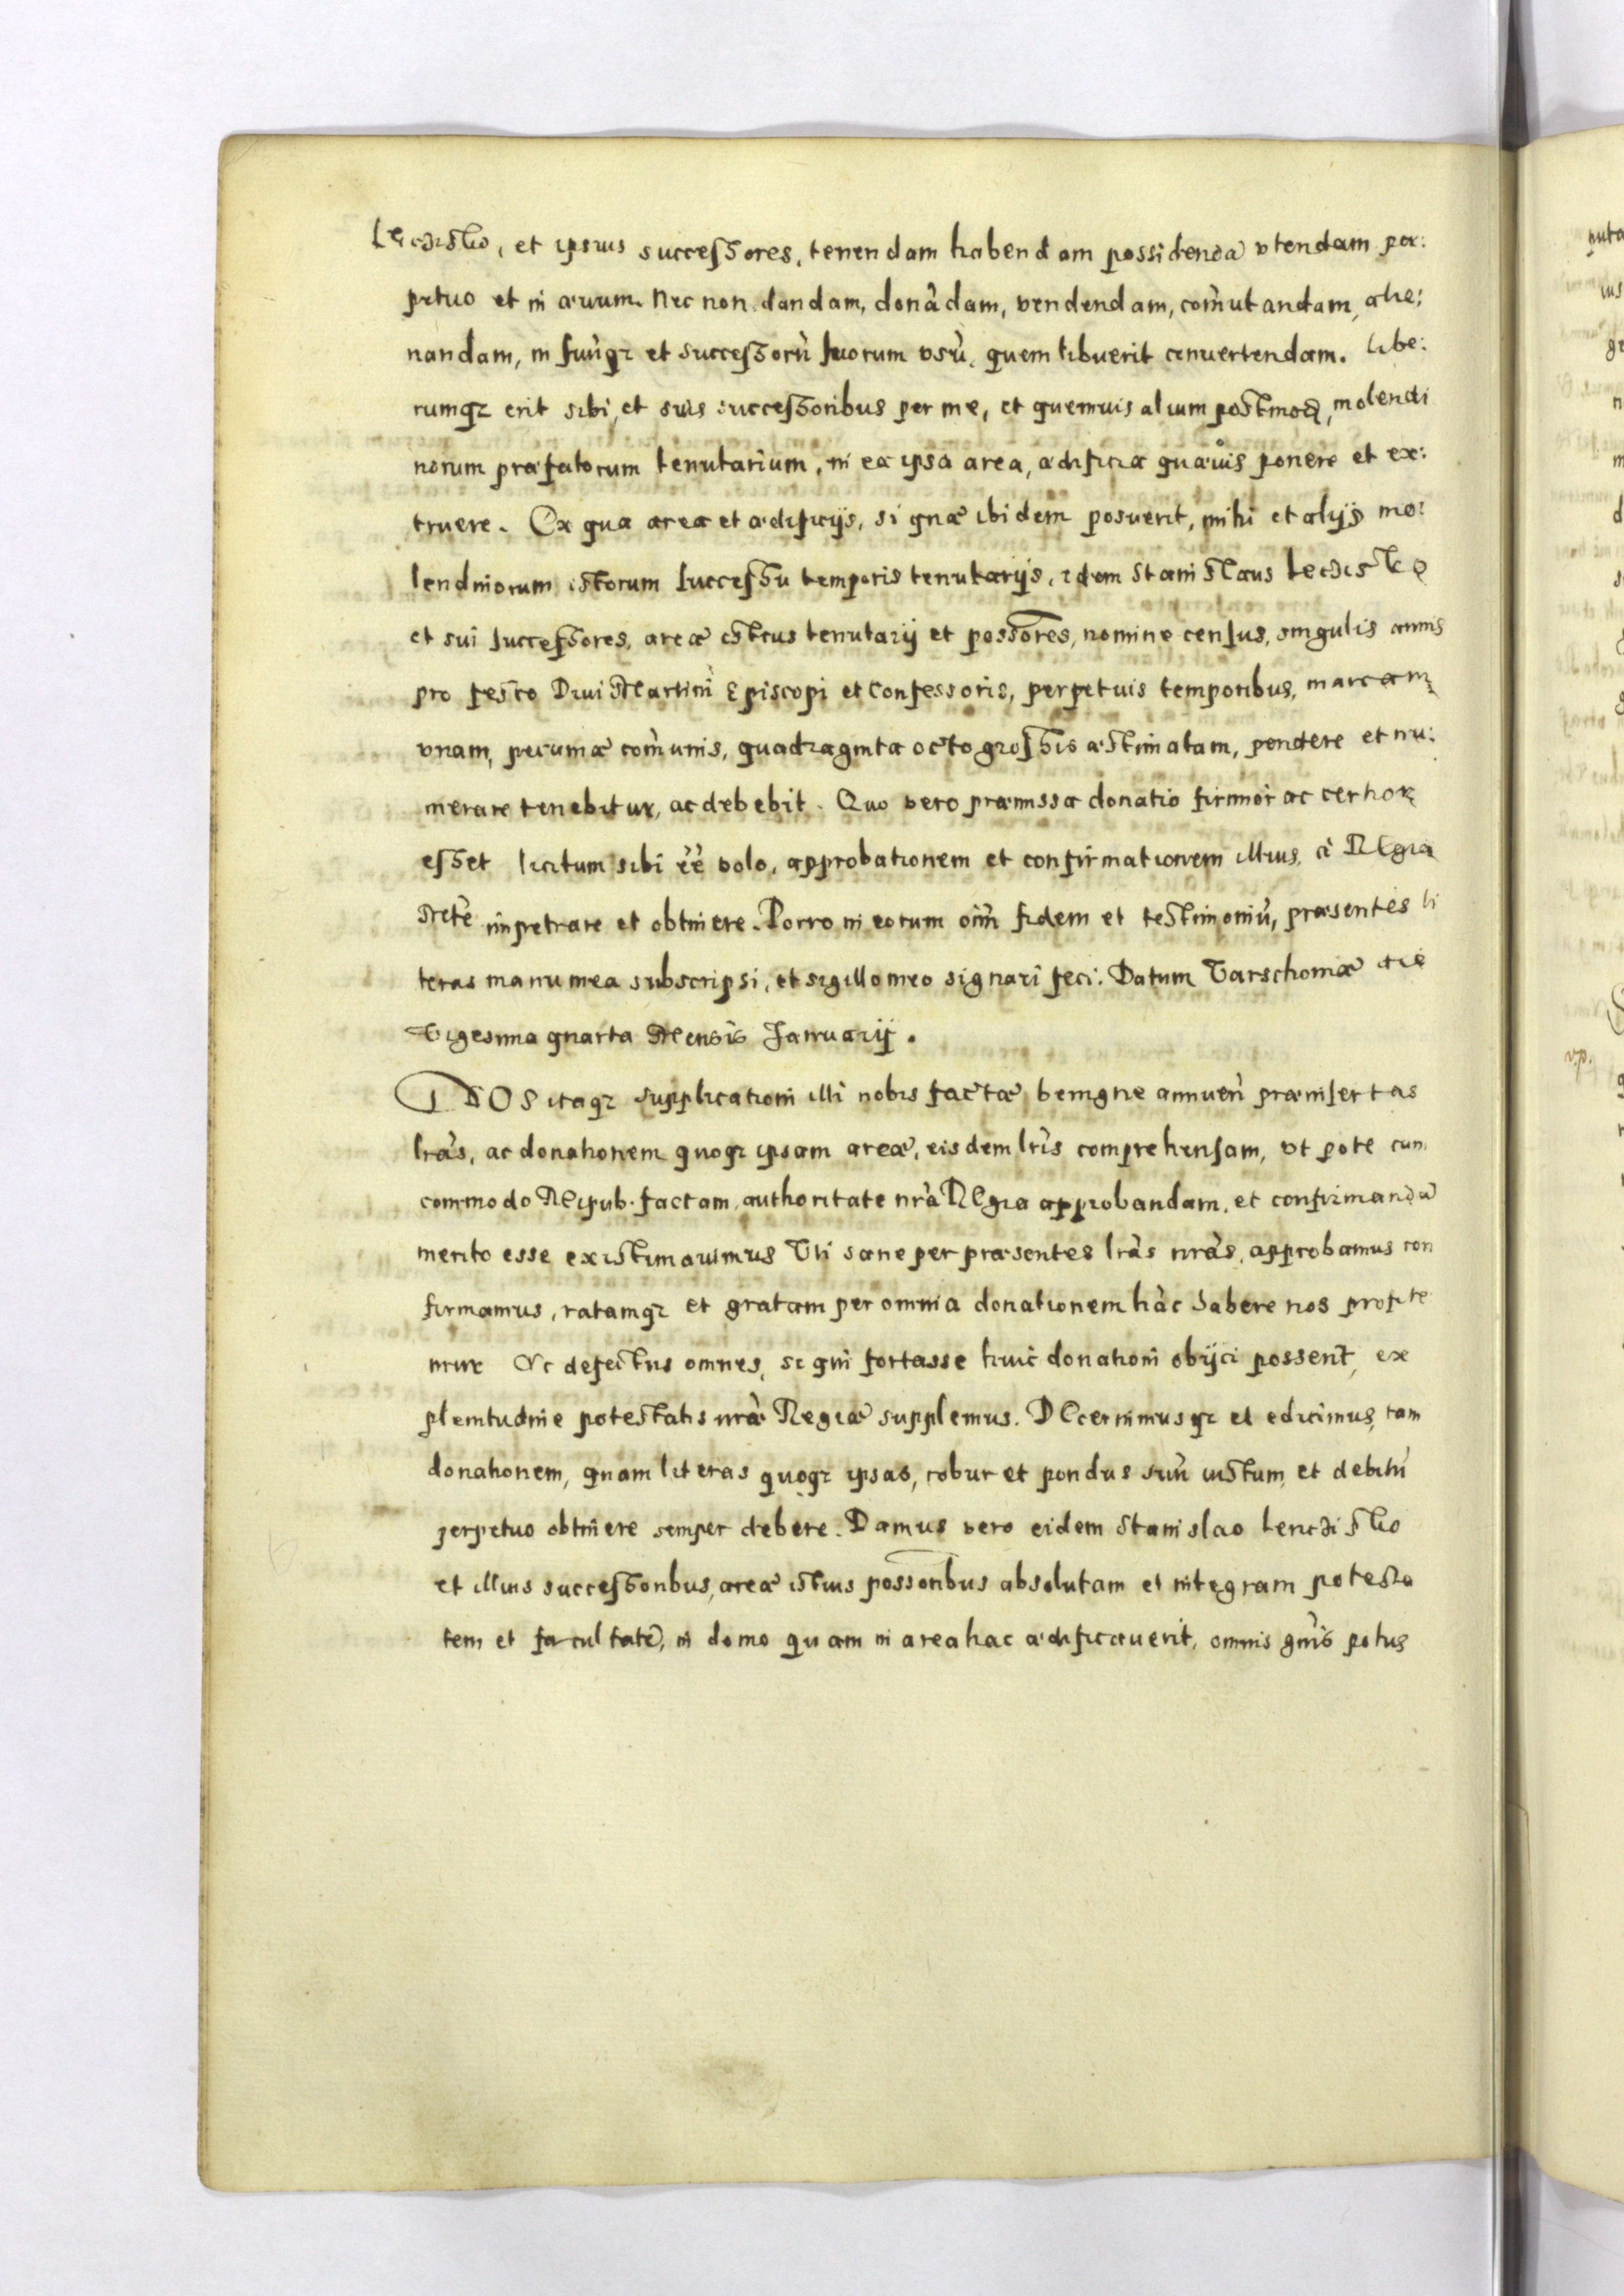 et ipsius successores, tenendam habendam possidendā vtendam per:
petuo et in æuum. Nec non dandam, donādam, vendendam, com̄utandam, alie:
nandam, in suūq; et successorū suorum vsū, quem libuerit conuertendam. Libe:
rumq; erit sibi, et suis successoribus per me, et quemuis alium postmodū, molendi
norum præfatorum tenutarium, in ea ipsa area, ædificia quæuis ponere et ex:
truere. Ex qua area et ædificijs, si quæ ibidem posuerit, mihi et alijs mo:
lendinorum istorum successu temporis tenutarijs, idem Stanislaus
et sui successores, areæ istius tenutarij et possores, nomine census, singulis annis
pro festo Diui Martini Episcopi et Confessoris, perpetuis temporibus, marcam
vnam, pecuniæ com̄unis, quadraginta octo grossis æstimatam, pendere et nu:
merare tenebitur, ac debebit. Quo vero præmissa donatio firmior ac certior
esset licitum sibi ēē volo, approbationem et confirmationem illius, à REgia
Mtē impetrare et obtinere. Porro in eorum oīm fidem et testimoniū, præsentes li
teras manu mea subscripsi, et sigillo meo signari feci. Datum Varschouiæ die
Vigesima quarta Mensis Januarij.
NOS itaq; supplicationi illi nobis factæ, benigne annuen̄ præinsertas
lrās, ac donationem quoq; ipsam areæ, eisdem lrīs comprehensam, vt pote cum
commodo REipub. factam, authoritate nrā REgia approbandam, et confirmandā
merito esse existimauimus Vti sane per præsentes lrās nrās, approbamus con
firmamus, ratamq; et gratam per omnia donationem hāc habere nos profite
mur Ac defectus omnes, si qui fortasse huic donationi obijci possent, ex
plenitudine potestatis nræ Regiæ supplemus. DEcernimusq; et edicimus, tam
donationem, quam literas quoq; ipsas, robur et pondus suū iustum, et debitū
perpetuo obtinere semper debere. Damus vero eidem Stanislao
et illius successoribus, areæ istius possoribus absolutam et integram potesta
tem et facultatē, in domo quam in area hac ædificauerit, omnis gn̄is potus